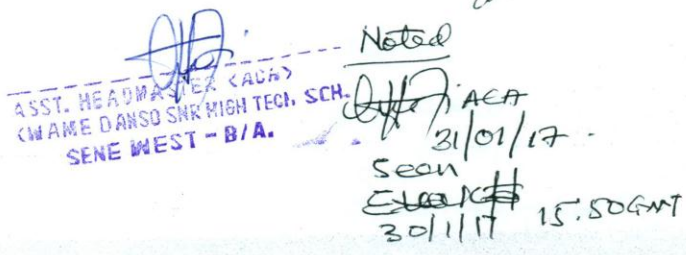 ASST. HEADMASTER (ACA)
KWAME DANSO SNR HIGH TECH. SCH.
SENE WEST - B/A.
Noted
ACA
31/01/17
Seen
30/1/17 15.50GMT